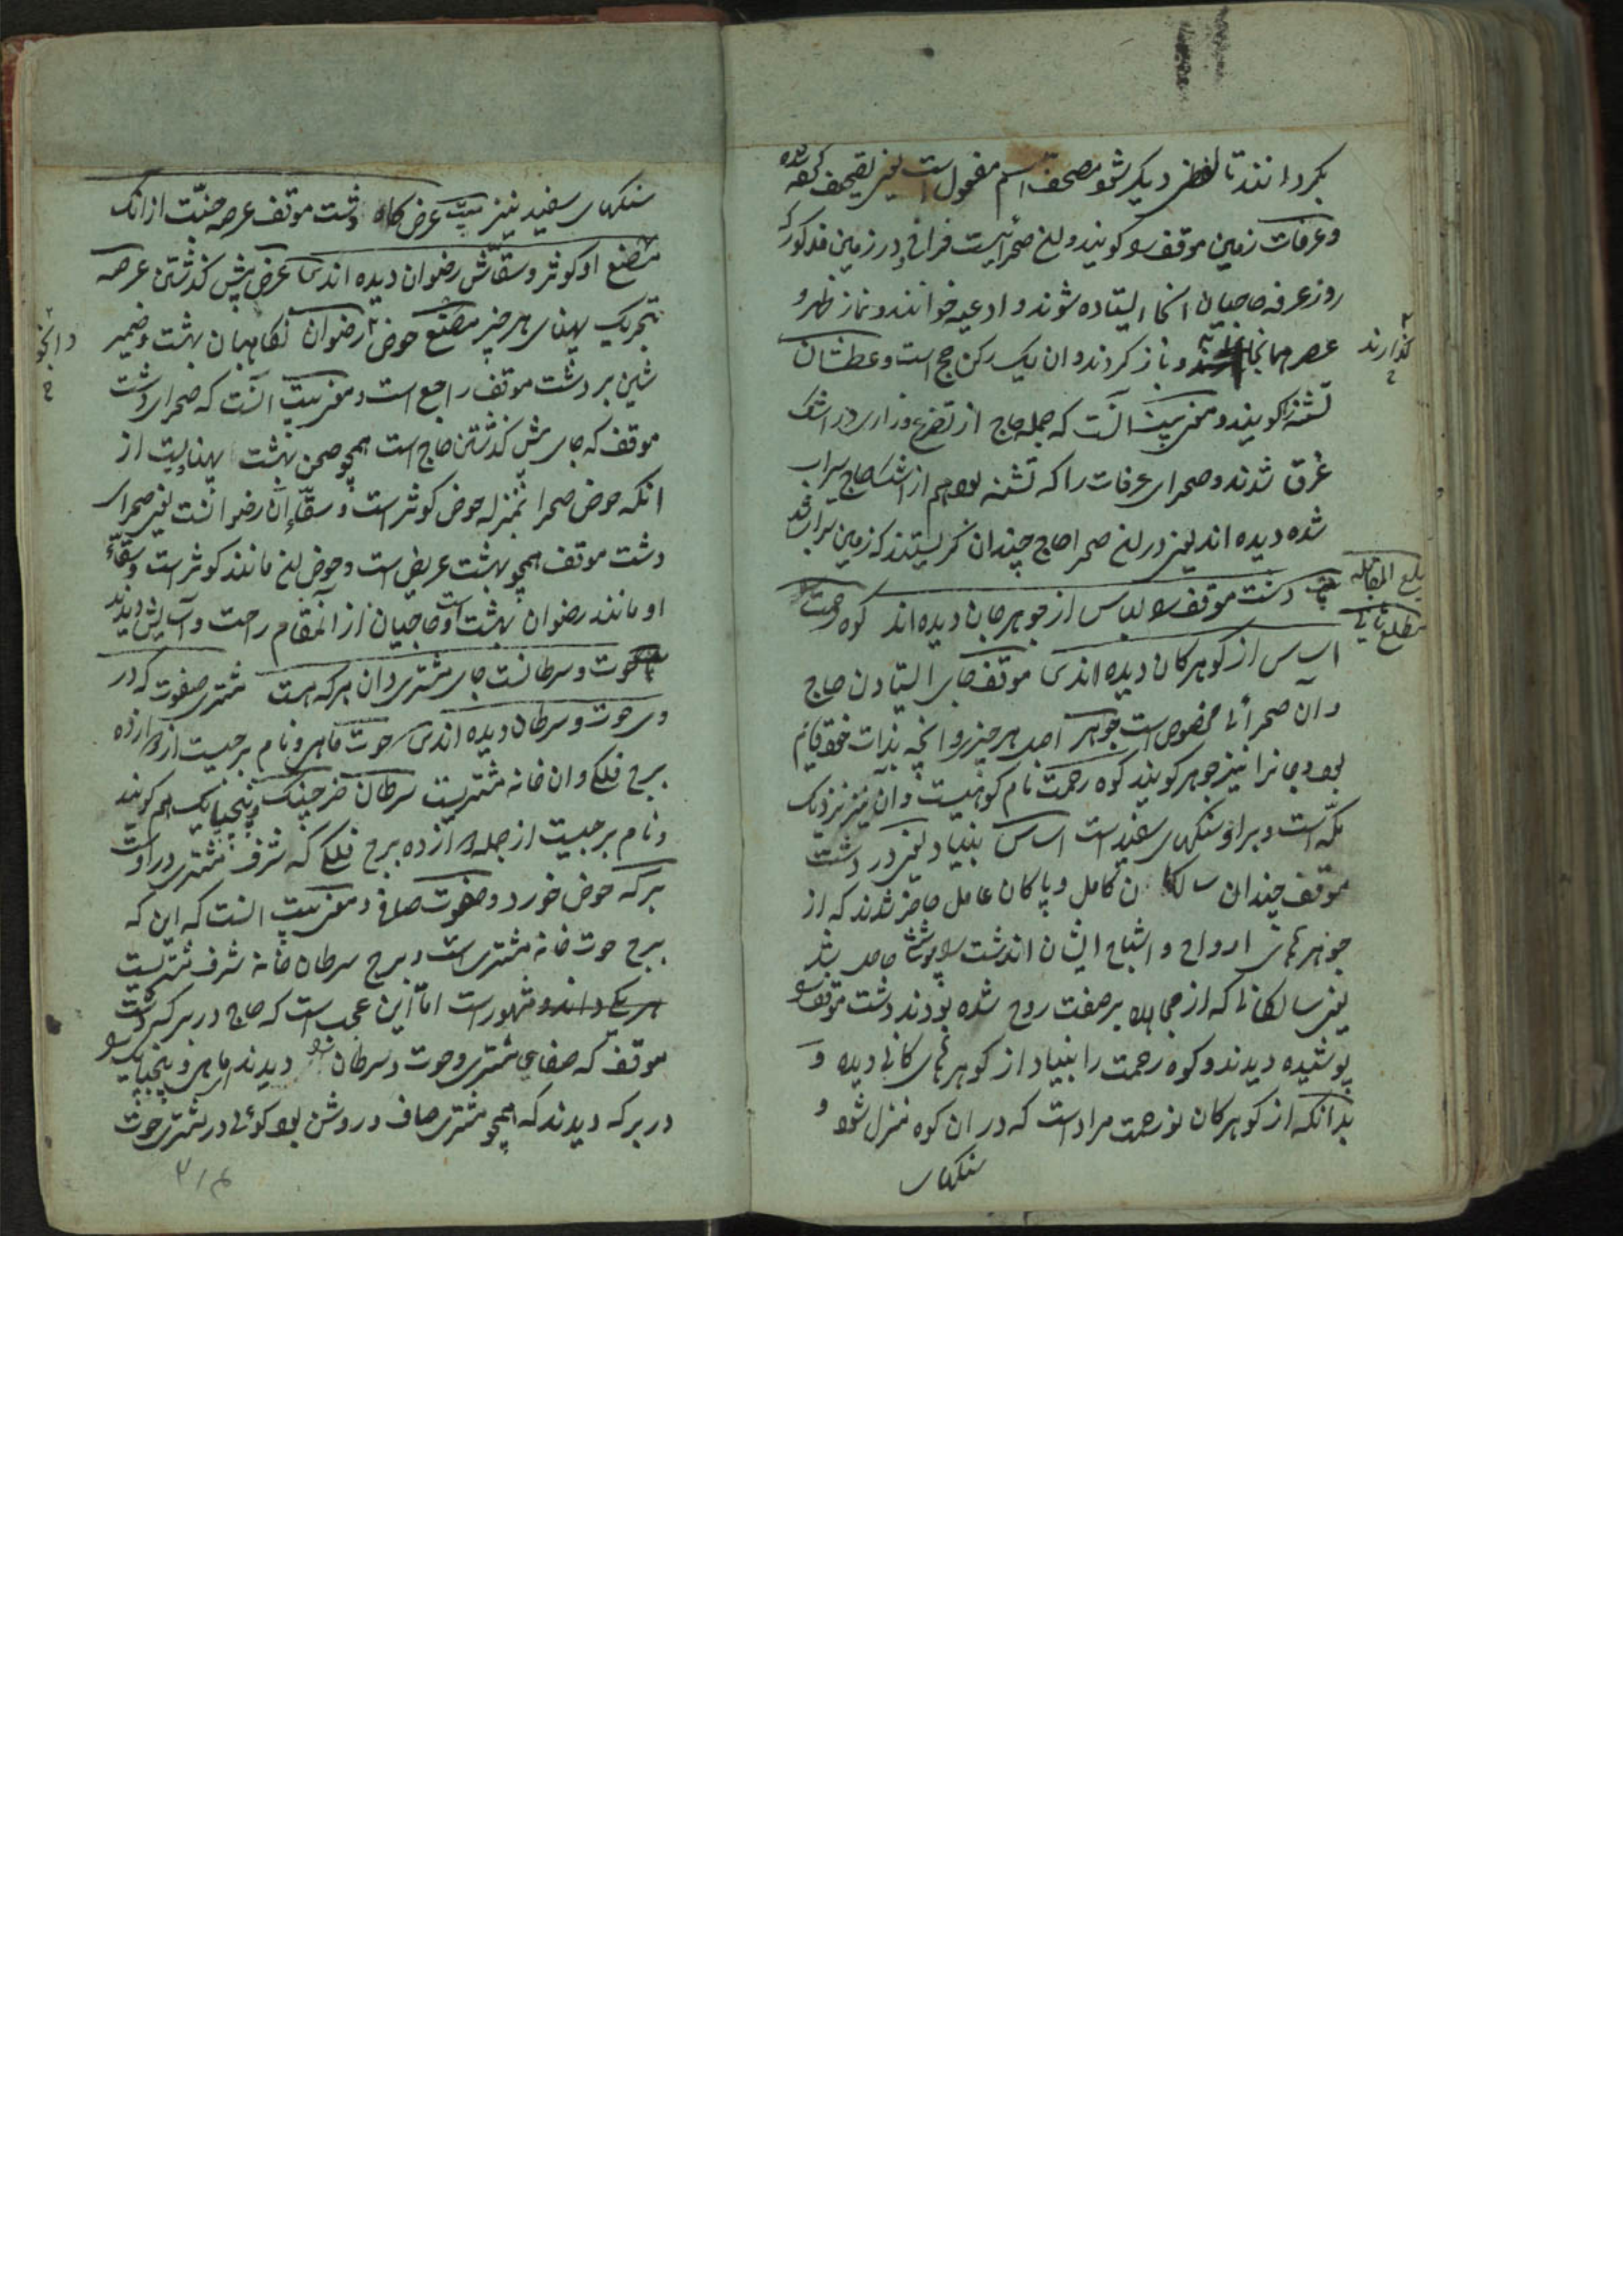 بکردانند تا لفظی دیکر شود مصحف اسم مفعول است یعنی تصحیف کرده شده
و عرفات زمین موقف را کویند و این صحرائیست فراخ در زمین مذکور که
روز عرفه حاجیان آنجا ایستاده شوند و ادعیه خوانند و نماز ظهر و
عصر همانجا و باز کردند و ان یک رکن حج است و عطشان
کذارند
تشنه را کویند و معنی بیت آنست که جمله حاج از تضرع و زاری در اشک
غرق شدند و صحرای عرفات را که تشنه بود هم از اشک حاج سیراب
شده دیده اند یعنی در این صحرا حاج چندان کریستند که زمین سیراب شد
بلغ المقابله
مطلع ثانی
دشت موقف را لباس از جوهر جان دیده اند کوه رحمت را
اساس از کوهر کان دیده اند موقف جای ایستادن حاج
و آن صحرائی مخصوص است جوهر اصل هر چیز و آنچه بذات خود قایم
بود و جانرا نیز جوهر کویند کوه رحمت نام کوهیست و آن نیز نزدیک
مکه است و بر او سنکهای سفید است اساس بنیاد یعنی در دشت
موقف چندان سالکان کامل و پاکان عامل حاضر شدند که از
جوهرهای ارواح و اشباح ایشان آندشت را پوشش حاصل شد
یعنی سالکانی که از مجاهده بر صفت روح شده بودند دشت موقف را
پوشیده دیدند و کوه رحمت را بنیاد از کوهرهای کانی دیده و
بدانکه از کوهر کان نور رحمت مراد است که در ان کوه منزل شود و
سنکهای
سنکهای سفید نیز بیت عرض کاه دشت موقف عرصه جنت از انک
مصنع او کوثر و سقاش رضوان دیده اند عرض پیش کذشتن عرصه
بتحریک پهنای هر چیز مصنع حوض رضوان نکاهبان بهشت و ضمیر
شین بر دشت موقف راجع است و معنی بیت آنست که صحرای دشت
موقف که جای پیش کذشتن حاج است همچو صحن بهشت پهناییت از
انکه حوض صحرا بمنزله حوض کوثر است و سقاء آن رضوانست یعنی صحرای
دشت موقف همچو بهشت عریض است و حوض این مانند کوثر است و سقاء
او مانند رضوان بهشت است و حاجیان از آنمقام راحت و آسایش دیدند
حوت و سرطانست جای مشتری و ان برکه هست مشتری صفوت که در
وی حوت و سرطان دیده اند حوت ماهی و نام برجیست از دوازده
برج فلکی و ان خانه مشتریست سرطان خرچنک و پنجپایک هم کویند
و نام برجیست از جمله دوازده برج فلکی که شرف مشتری در اوست
برکه حوض خورد و صفوت صافی و معنی بیت آنست که این که
برج حوت خانه مشتری است و برج سرطان خانه شرف مشتریست
هر یکی داند و مشهور است اما این عجب است که حاج در برکه دشت
موقف که صفای مشتری و حوت و سرطان دیدند ماهی و پنجپایک را
در برکه دیدند که همچو مشتری صاف و روشن بود کوئی در مشتری حوت